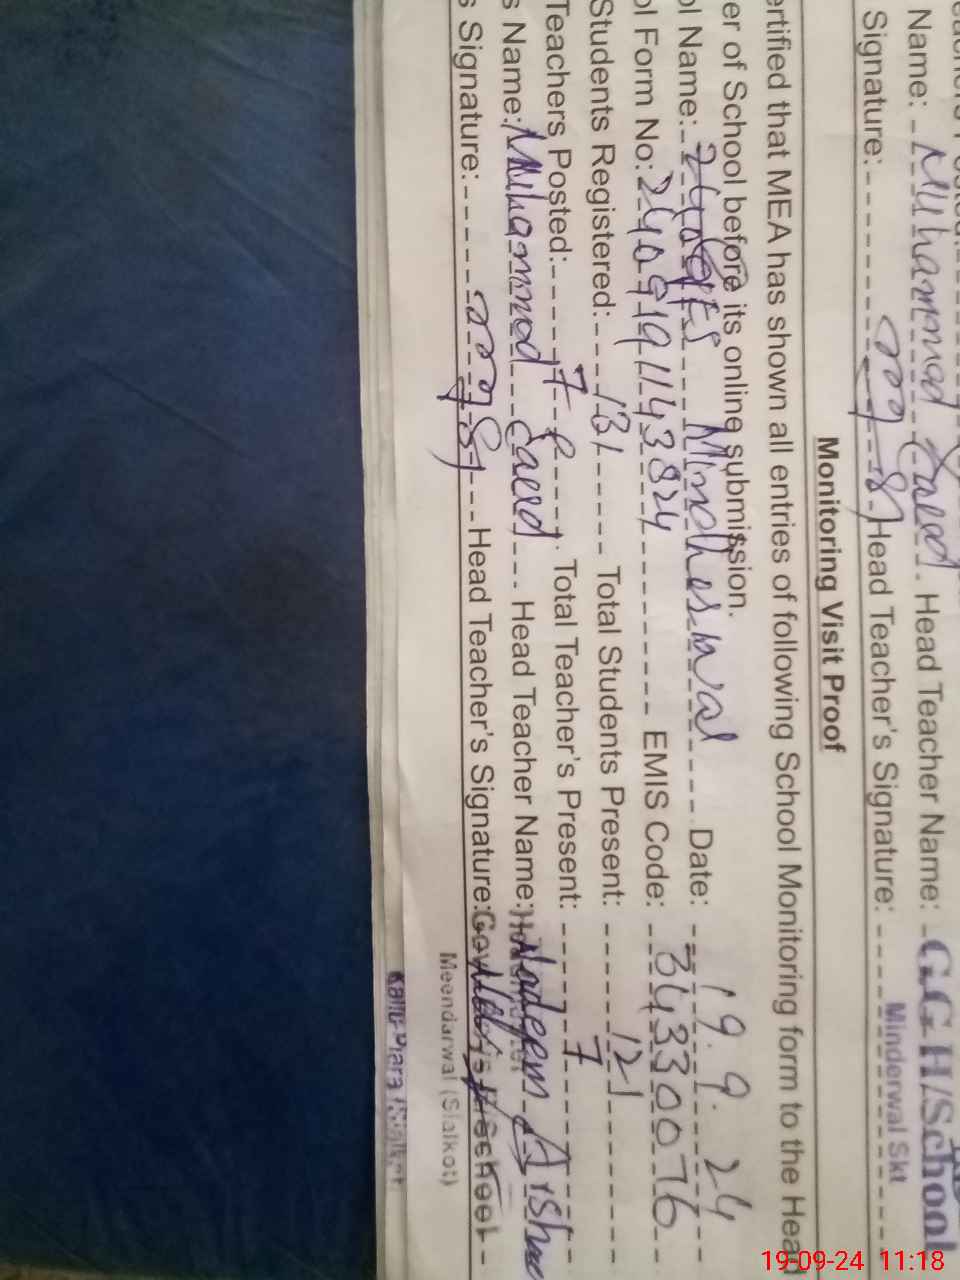 Name: Muhammad Saeed Head Teacher Name: G.G.H/School
Signature: Head Teacher's Signature: Minderwal Skt
Monitoring Visit Proof
ertified that MEA has shown all entries of following School Monitoring form to the Head
er of School before its online submission.
ol Name: Date: 19.9.24
ol Form No: 2409191143824 EMIS Code: 34330076
Students Registered: 131 Total Students Present: 121
Teachers Posted: 7 Total Teacher's Present: 7
s Name: Muhammad Saeed Head Teacher Name: Nadeem
s Signature: Head Teacher's Signature:
Meendarwal (Sialkot)
19-09-24 11:18